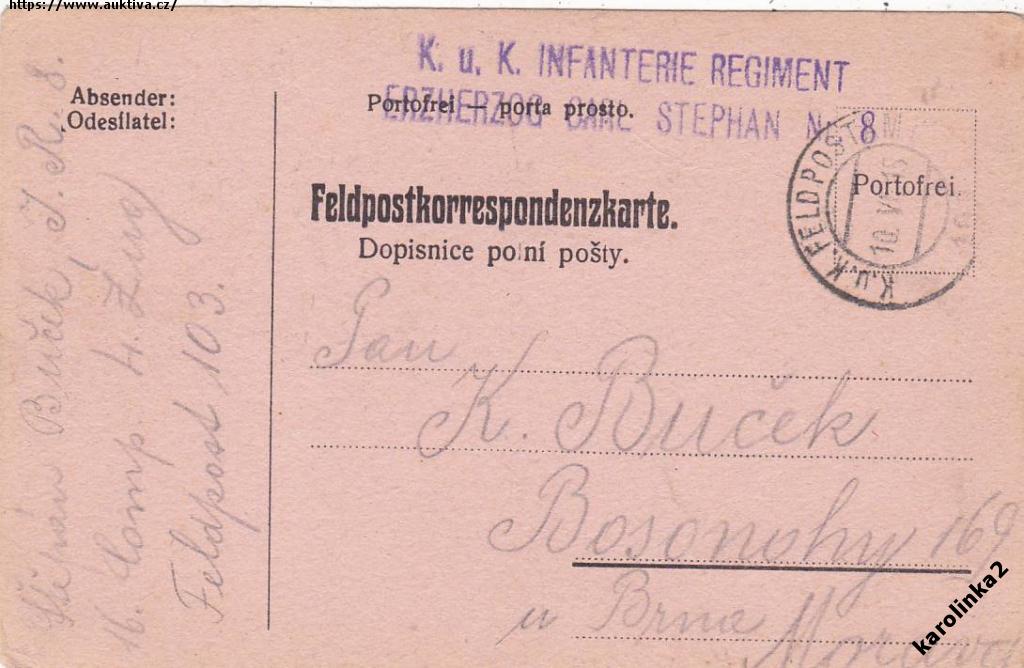 https://www.auktiva.cz/
K. u. K. INFANTERIE REGIMENT
ERZHERZOG CARL STEPHAN Nr. 8
Absender:
Odesílatel:
Portofrei — porta prosto.
Portofrei.
K.u.K. FELDPOSTAM
10. V
Feldpostkorrespondenzkarte.
Dopisnice polní pošty.
Pan
K. Buček
Bosonohy 169
u Brna
Buček, I. R. 8.
16. Comp. 4. Zug
Feldpost 103.
karolinka2